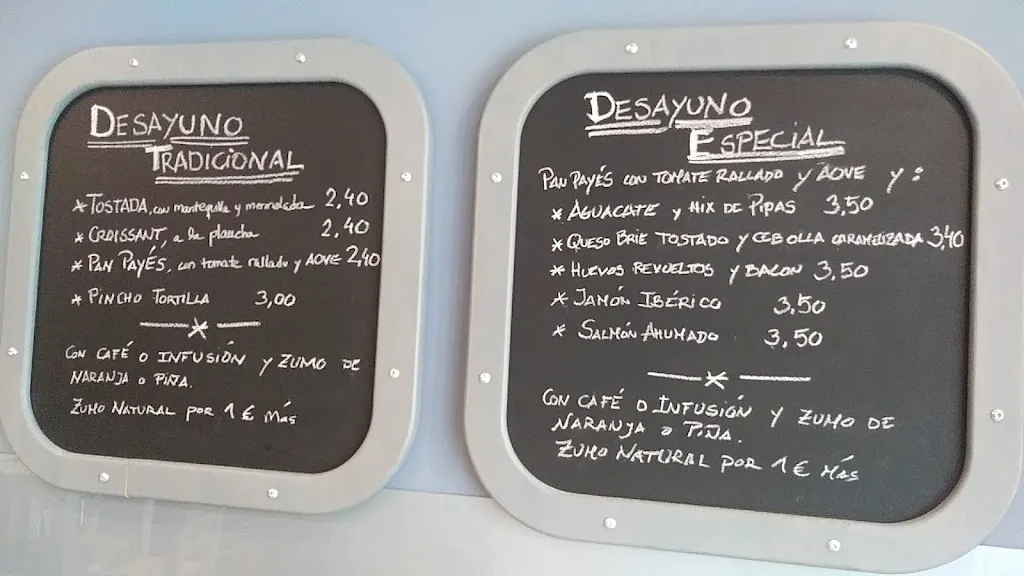 DESAYUNO
TRADICIONAL
* TOSTADA, con mantequilla y mermelada 2,40
* CROISSANT, a la plancha 2,40
* PAN PAYÉS, con tomate rallado y AOVE 2,40
* PINCHO TORTILLA 3,00
CON CAFÉ O INFUSIÓN Y ZUMO DE
NARANJA O PIÑA.
ZUMO NATURAL POR 1 € MÁS
DESAYUNO
ESPECIAL
PAN PAYÉS CON TOMATE RALLADO Y AOVE Y:
* AGUACATE Y MIX DE PIPAS 3,50
* QUESO BRIE TOSTADO Y CEBOLLA CARAMELIZADA 3,40
* HUEVOS REVUELTOS Y BACON 3,50
* JAMÓN IBÉRICO 3,50
* SALMÓN AHUMADO 3,50
CON CAFÉ O INFUSIÓN Y ZUMO DE
NARANJA O PIÑA.
ZUMO NATURAL POR 1 € MÁS